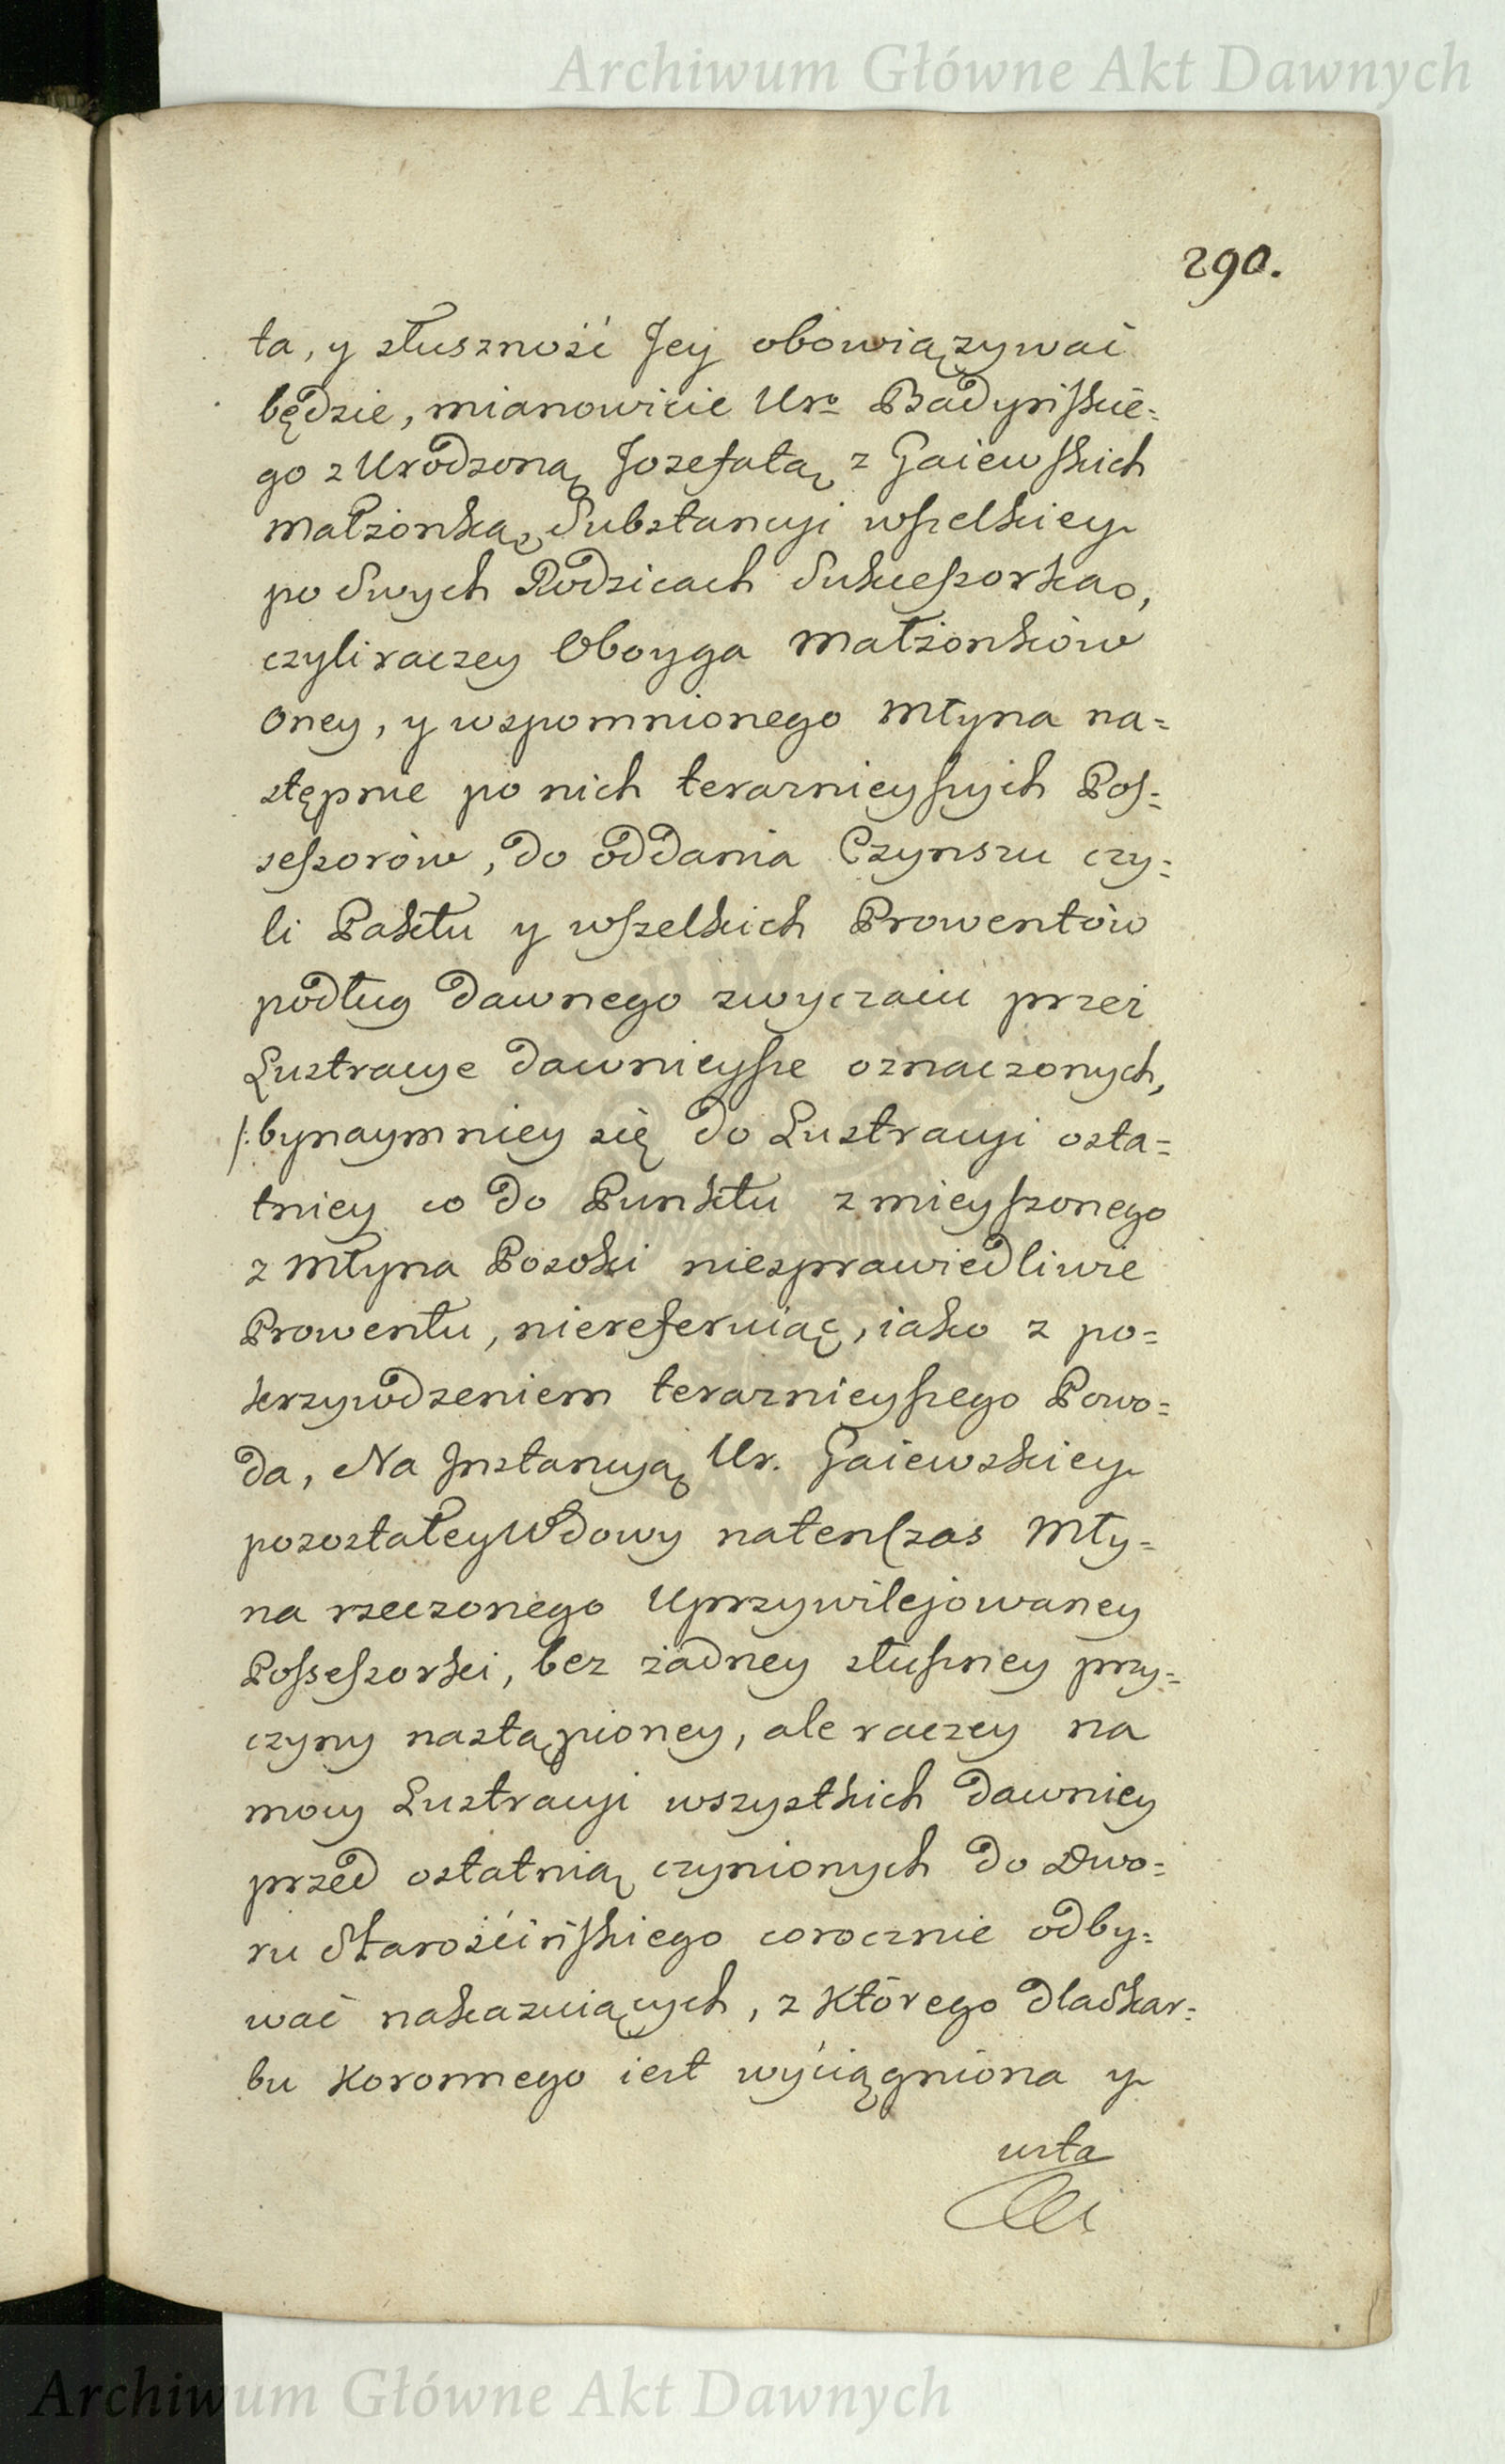 Archiwum Główne Akt Dawnych
290.
ta, y słuszność Jey obowiązywać
będzie, mianowicie Uro Badyńskie=
go z Urodzoną Jozefatą z Gaiewskich
Małżonką, Substancyi wszelkiey
po Swych Rodzicach Sukcessorką,
czyli raczey Oboyga Małżonków
Oney, y wspomnionego Młyna na=
stępnie po nich teraznieyszych Pos=
sessorów, do oddania Czynszu czy=
li Paktu y wszelkich Prowentów
podług dawnego zwyczaiu przez
Lustracye dawnieysze oznaczonych,
/:bynaymniey się do Lustracyi osta=
tniey co do Punktu zmieyszonego
z Młyna Posoki niesprawiedliwie
Prowentu, niereferuiąc, iako z po=
krzywdzeniem teraznieyszego Powo=
da, Na Instancyą Ur. Gaiewskiey
pozostałey Wdowy natenczas Mły=
na rzeczonego Uprzywilejowaney
Possessorki, bez żadney słuszney przy=
czyny nastąpioney, ale raczey na
mocy Lustracyi wszystkich dawniey
przed ostatnią czynionych do Dwo=
ru Starościńskiego corocznie odby=
wać nakazuiących, z którego dla Skar=
bu Koronnego iest wyciągniona y
usta
Archiwum Główne Akt Dawnych